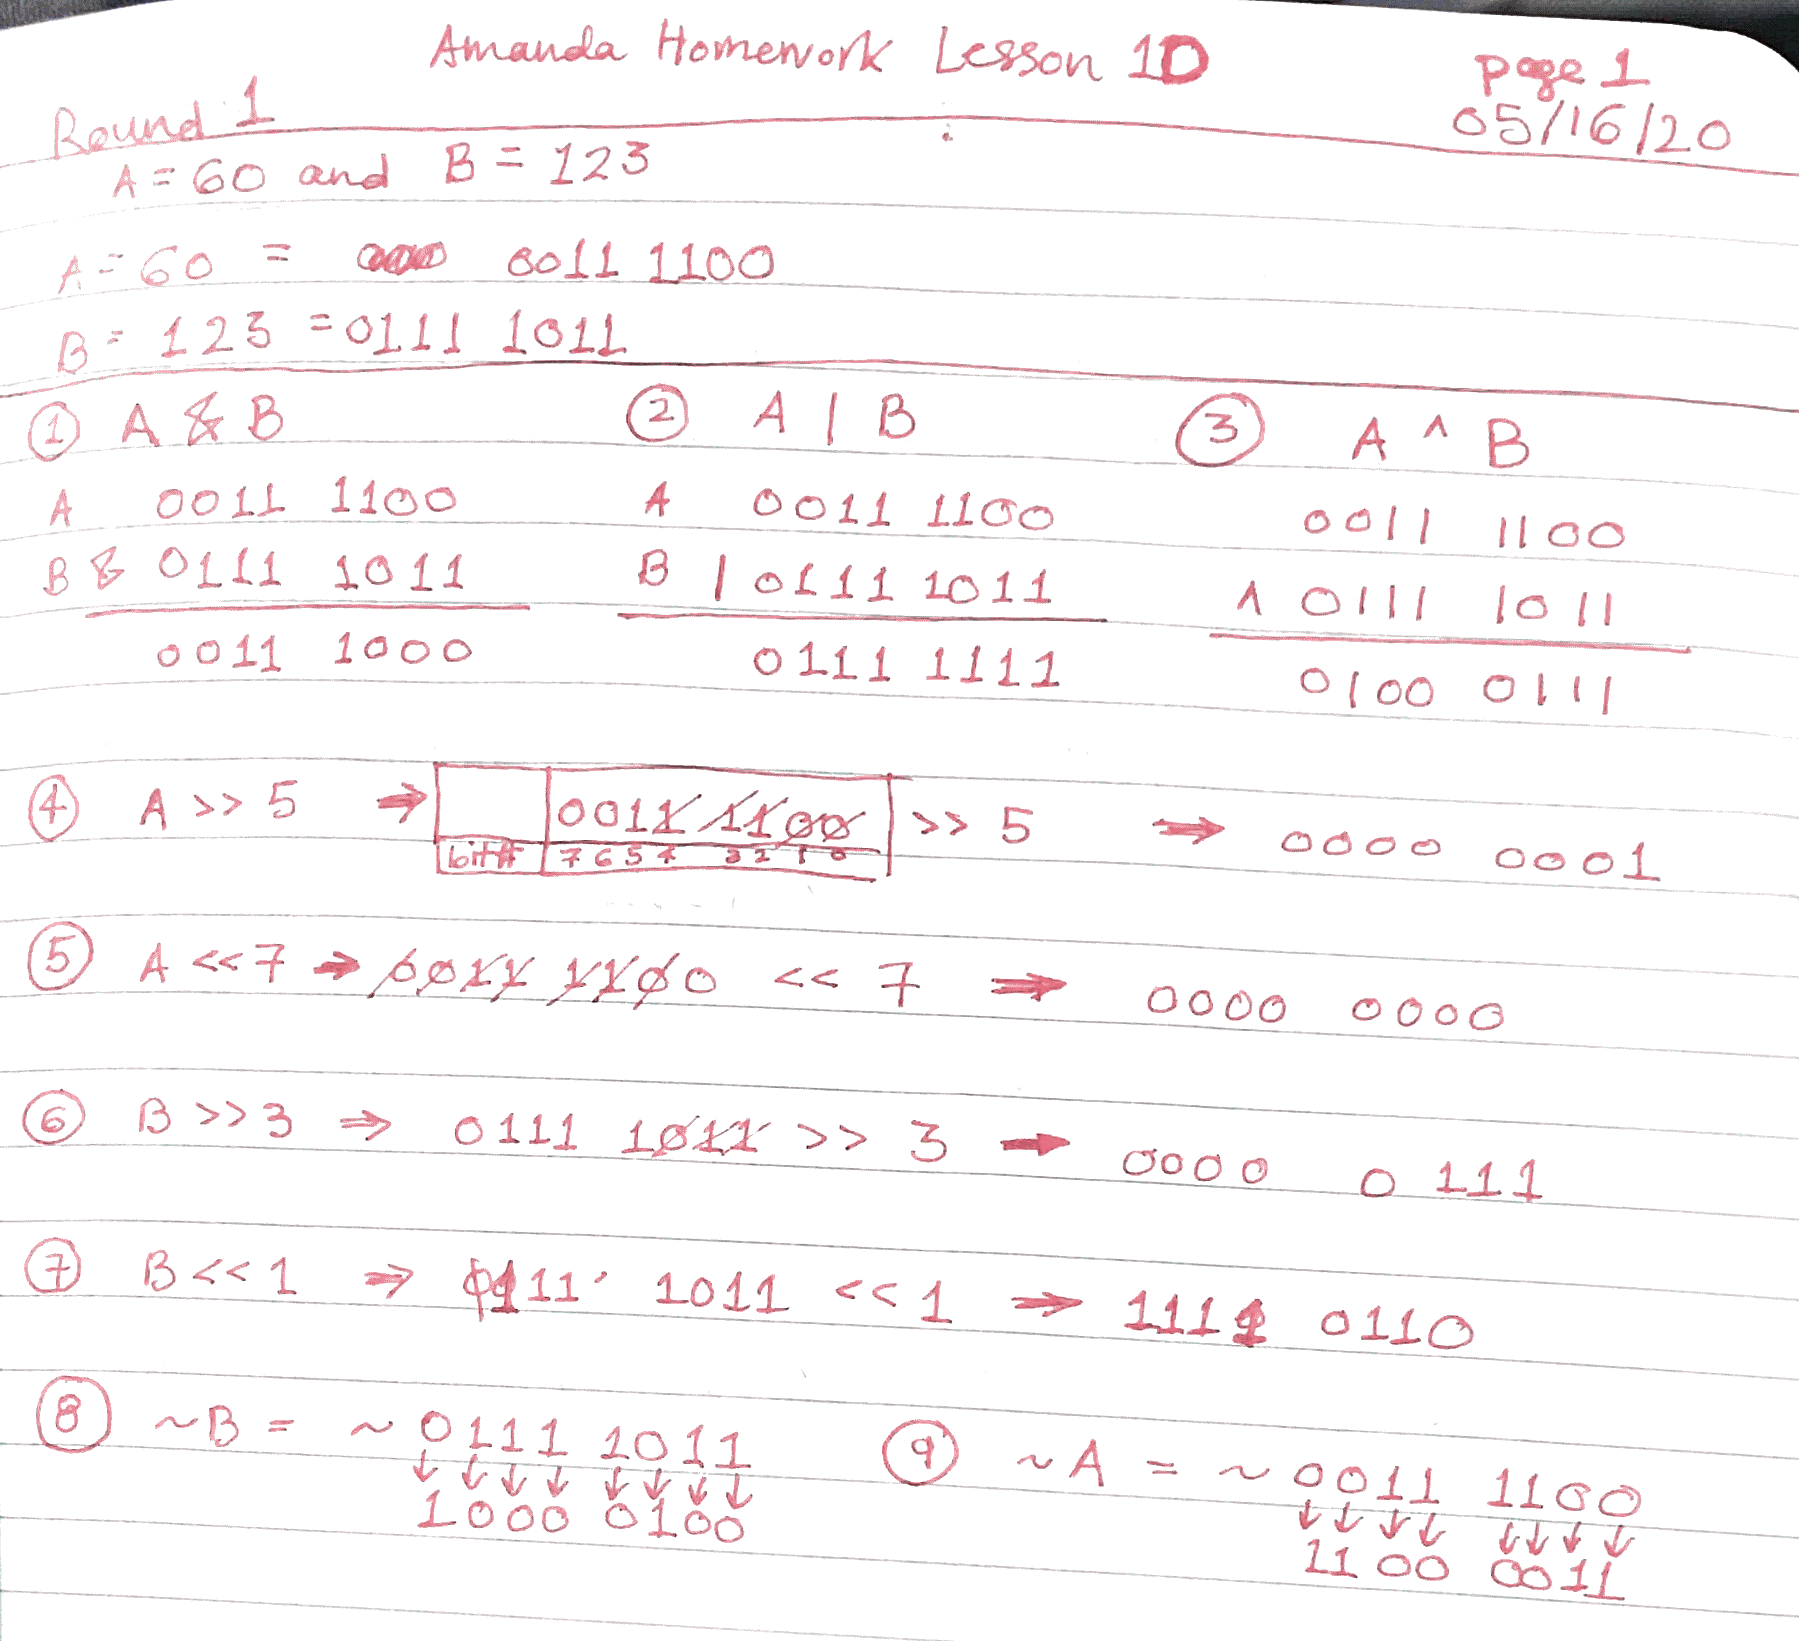 Amanda Homework Lesson 10
page 1
05/16/20
Round 1
A = 60 and B = 123
A = 60 = 0011 1100
B = 123 = 0111 1011
① A & B ② A | B ③ A ^ B
A 0011 1100 A 0011 1100 0011 1100
B & 0111 1011 B | 0111 1011 ^ 0111 1011
0011 1000 0111 1111 0100 0111
④ A >> 5 ⇒ 0011 1100 >> 5 ⇒ 0000 0001
bit# 7 6 5 4 3 2 1 0
⑤ A << 7 → 0011 1100 << 7 ⇒ 0000 0000
⑥ B >> 3 ⇒ 0111 1011 >> 3 → 0000 0111
⑦ B << 1 ⇒ 0111 1011 << 1 ⇒ 1111 0110
⑧ ~B = ~ 0111 1011 ⑨ ~A = ~ 0011 1100
↓ ↓ ↓ ↓ ↓ ↓ ↓ ↓ ↓ ↓ ↓ ↓ ↓ ↓ ↓ ↓
1000 0100 1100 0011